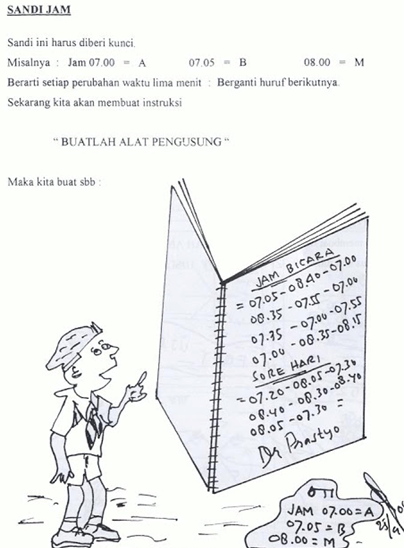 SANDI JAM
Sandi ini harus diberi kunci.
Misalnya : Jam 07.00 = A 07.05 = B 08.00 = M
Berarti setiap perubahan waktu lima menit : Berganti huruf berikutnya.
Sekarang kita akan membuat instruksi
“ BUATLAH ALAT PENGUSUNG “
Maka kita buat sbb :
JAM BICARA
= 07.05-08.40-07.00
08.35-07.55-07.00
07.35-07.00-07.55
07.00-08.35-08.15
SORE HARI
= 07.20-08.05-07.30
08.40-08.30-08.40
08.05-07.30 =
Dr Prastyo
JAM 07.00=A
07.05=B
08.00=M